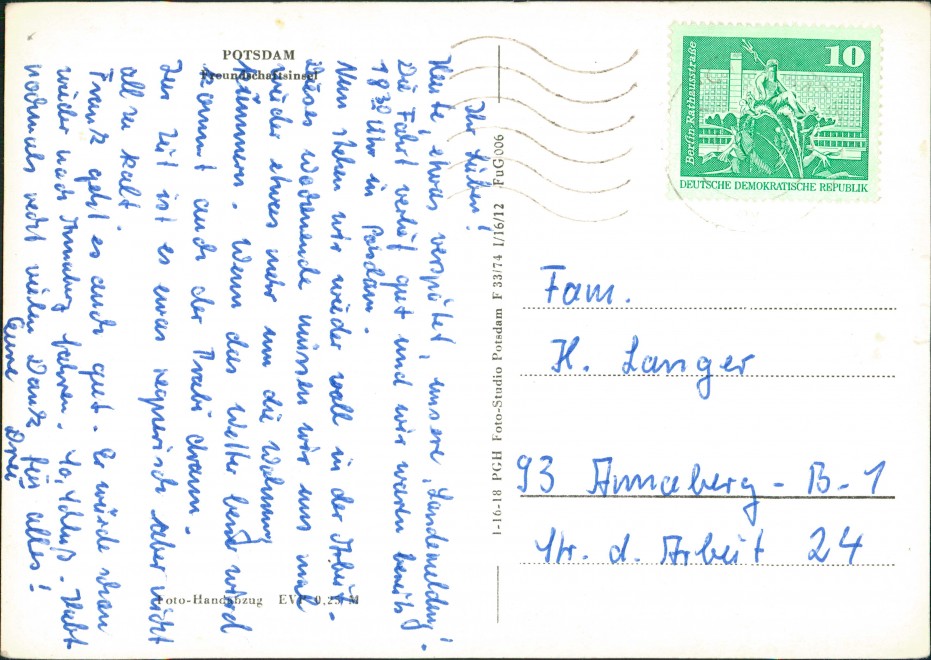 POTSDAM
Freundschaftsinsel
Ihr Lieben!
Heute, etwas verspätet, unsere "Landemeldung"!
Die Fahrt verlief gut und wir waren bereits
18³⁰ Uhr in Potsdam.
Nun stehen wir wieder voll in der Arbeit.
Dieses Wochenende müssen wir uns mal
wieder etwas mehr um die Wohnung
kümmern. Wenn das Wetter besser wird
kommt auch der Trabi dran.
Zur Zeit ist es etwas regnerisch aber nicht
allzu kalt.
Frank geht es auch gut. Er würde schon
wieder nach Annaberg fahren. So, Schluß. Habt
nochmals recht vielen Dank für alles!
Eure Drei
Foto-Handabzug EVP 0,25 M
1-16-18 PGH Foto-Studio Potsdam F 33/74 I/16/12 FuG 006
Berlin · Rathausstraße
10
DEUTSCHE DEMOKRATISCHE REPUBLIK
Fam.
H. Langer
93 Annaberg - B - 1
Str. d. Arbeit 24